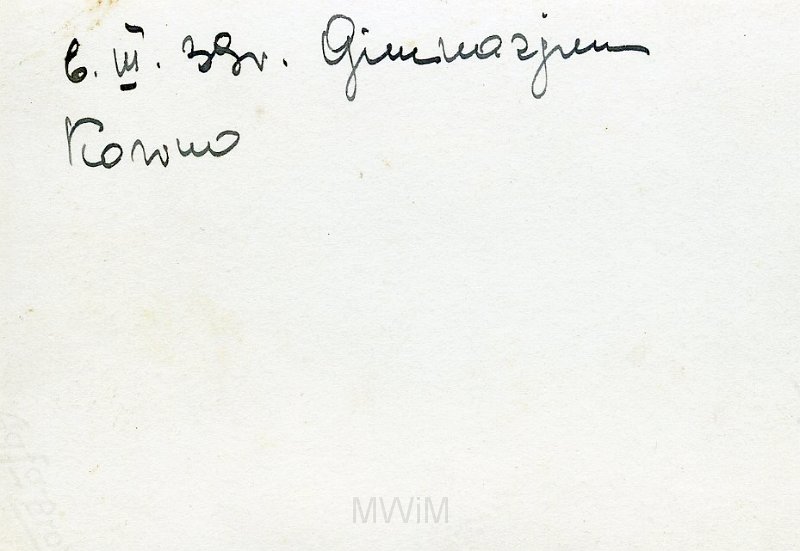 6. III. 39r. Gimnazjum
Kowno
MWiM